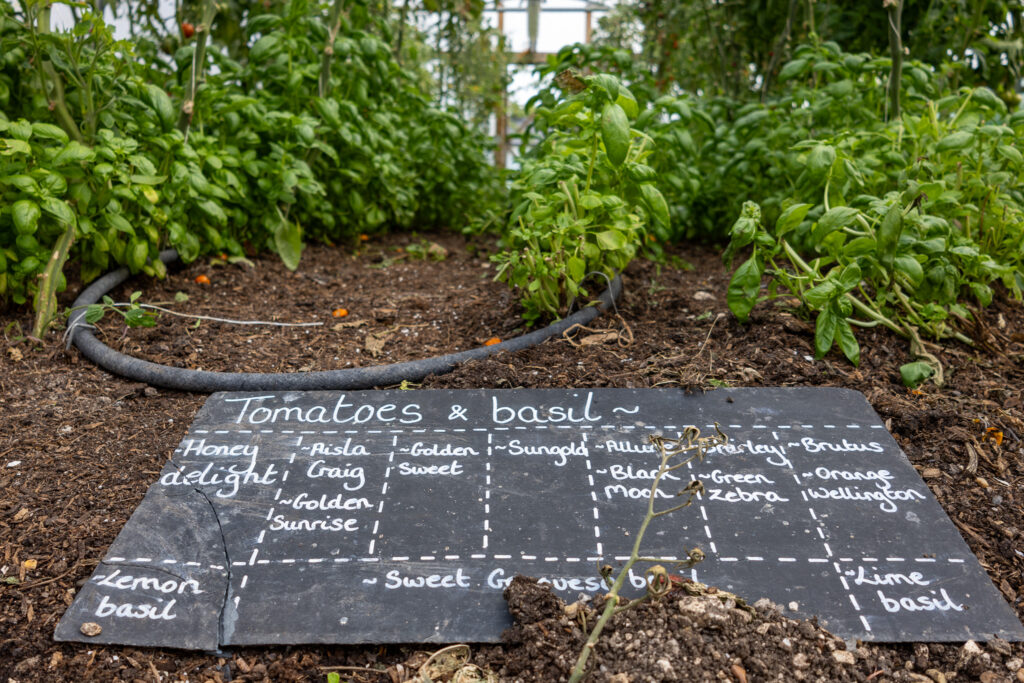 Tomatoes & basil ~
~Honey delight
~Aisla Craig
~Golden Sunrise
~Golden Sweet
~Sungold
~Black Moon
~Green Zebra
~Brutus
~Orange Wellington
~Lemon basil
~Sweet
~Lime basil